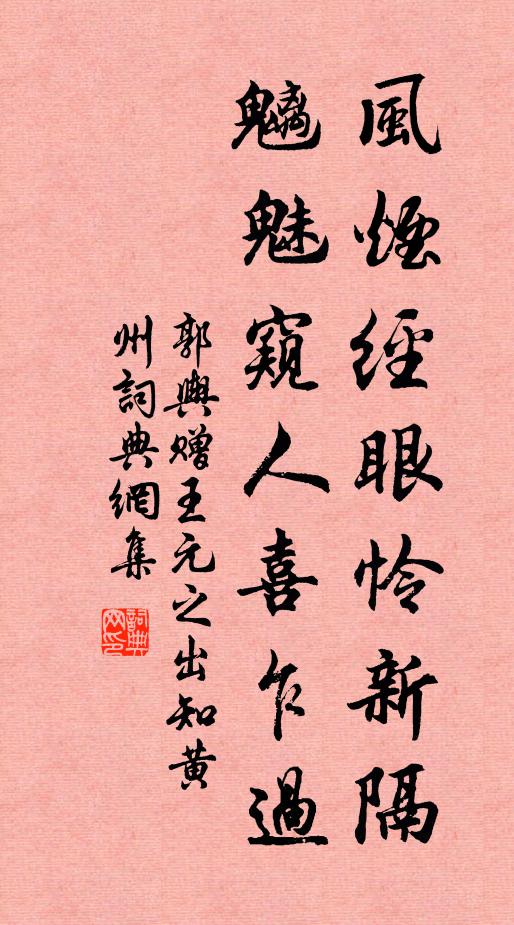 風煙經眼怜新隔
魑魅窺人喜乍過
郭輿赠王元之出知黄
州詞典網集
詞典网印